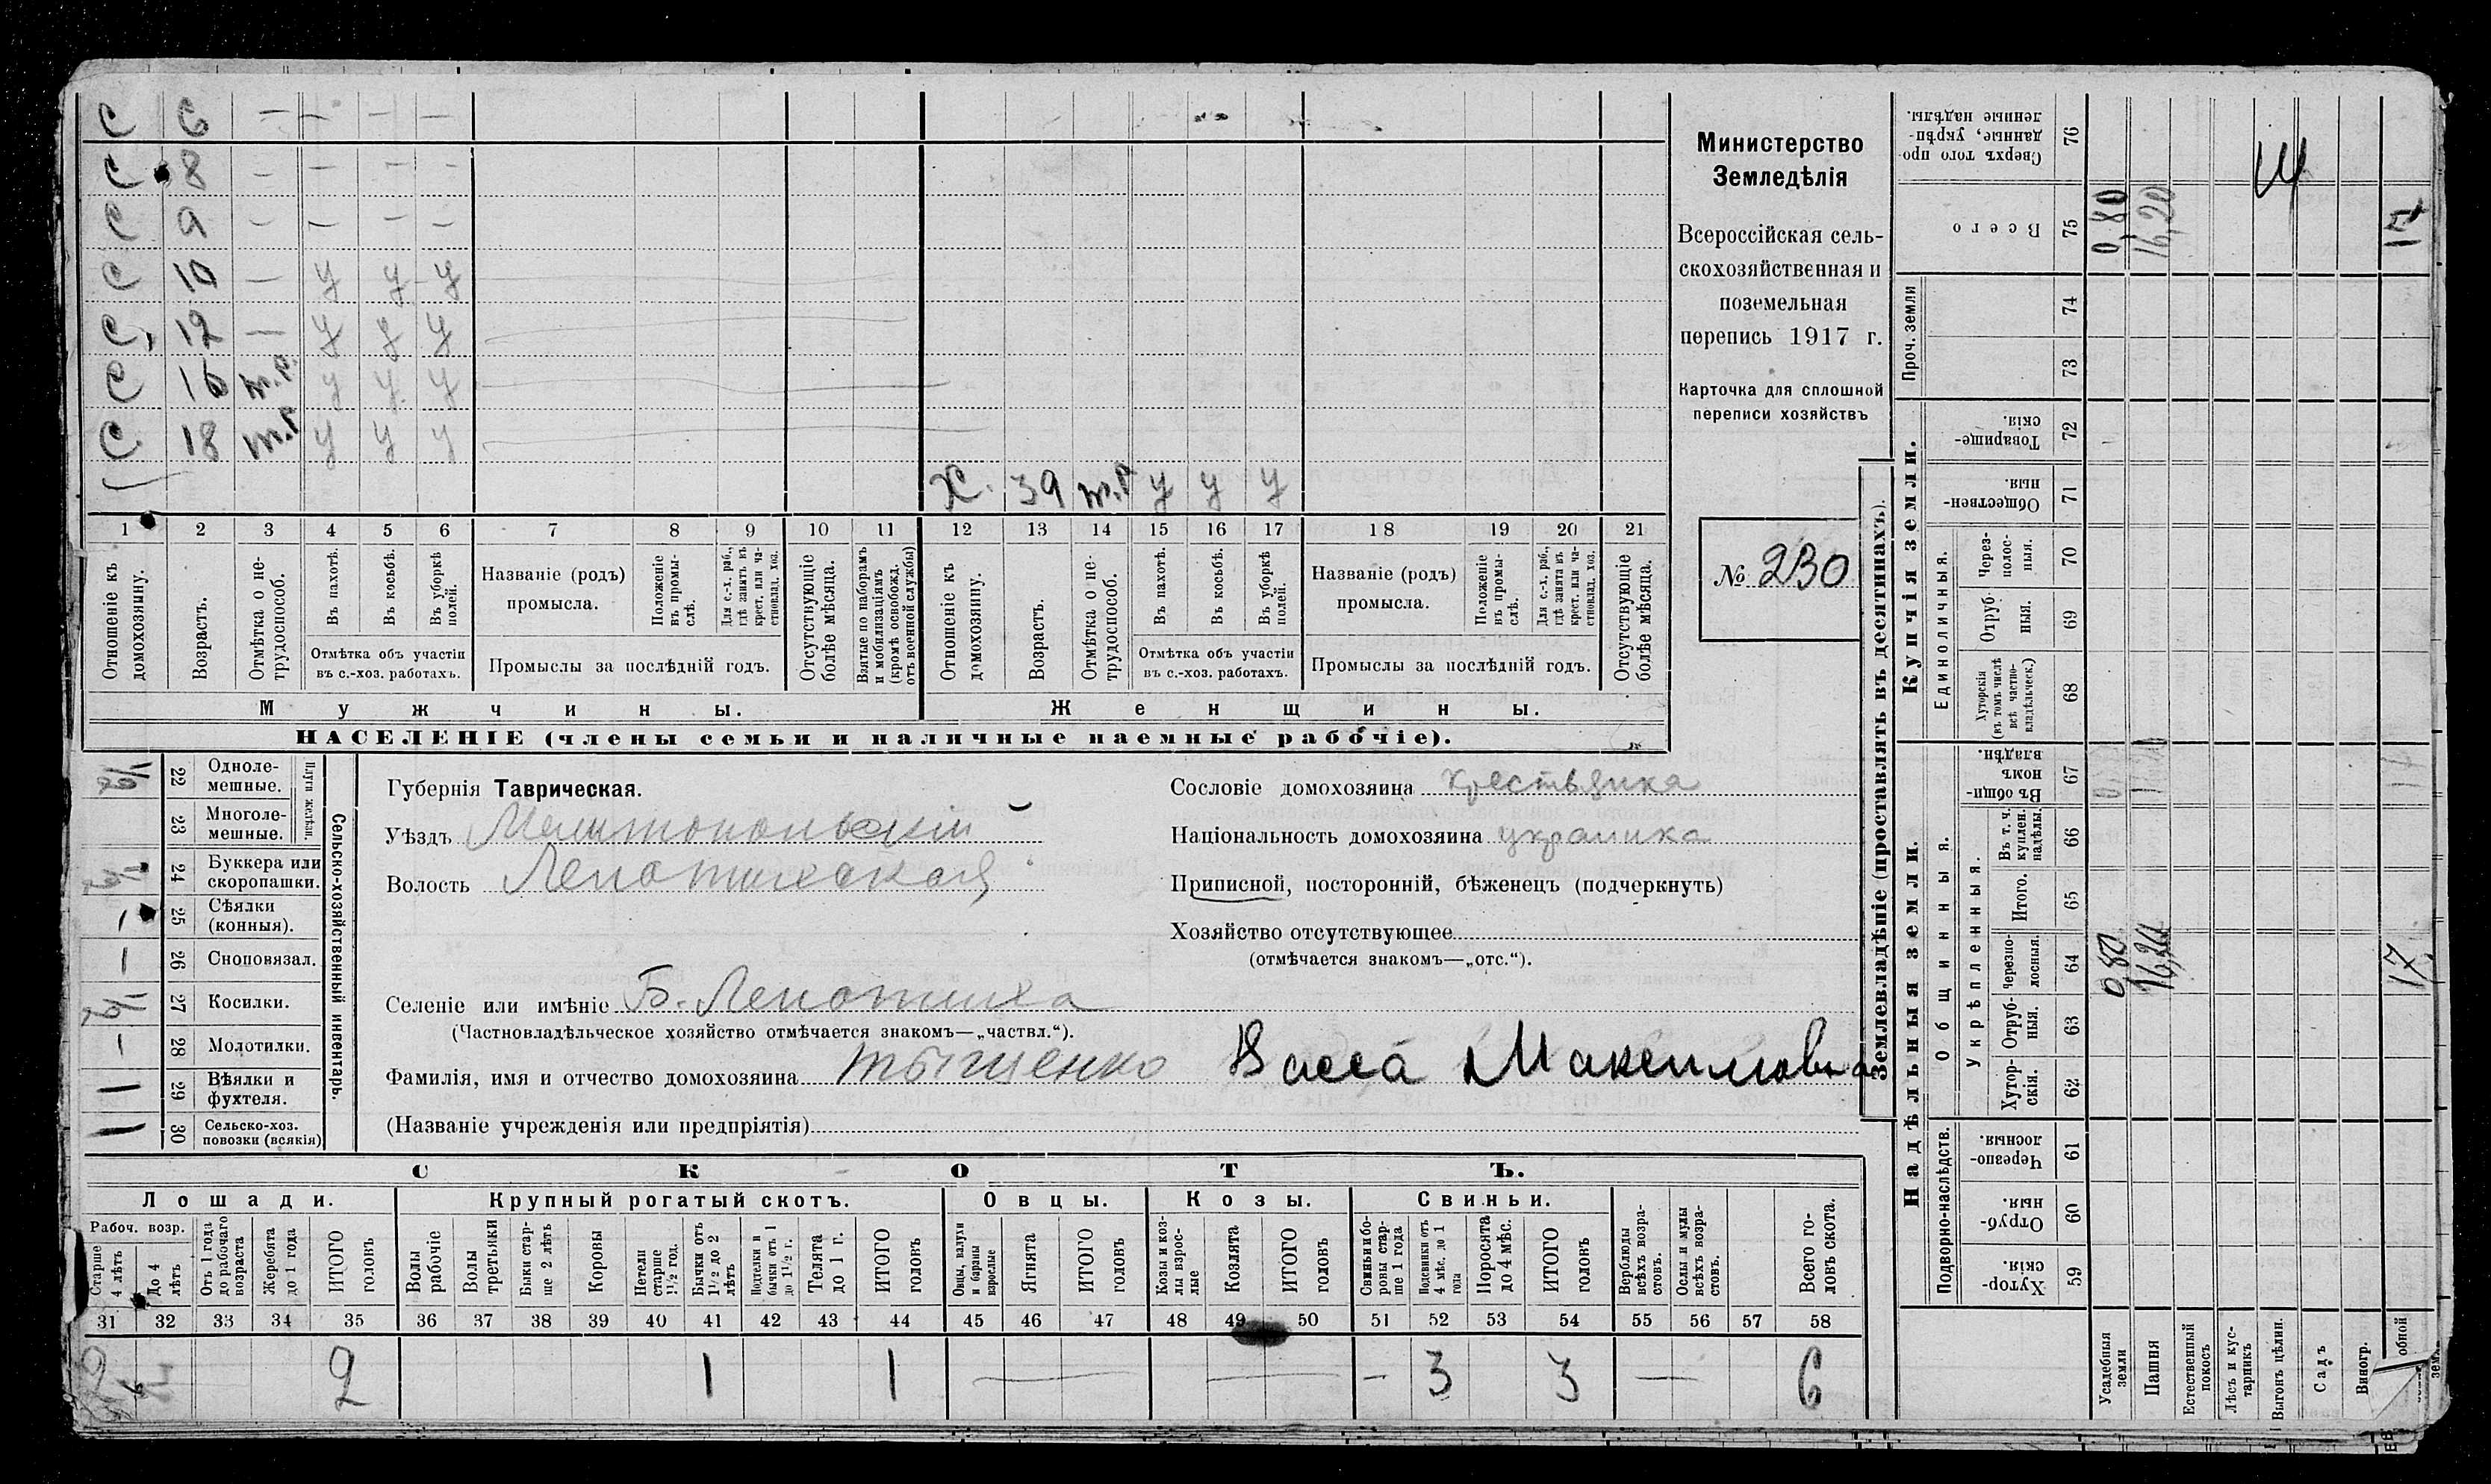 С 6 — — — —
С 8 — — — —
С 9 — — — —
С 10 — у у у
С, 12 — у у у
С 16 т.р. у у у
С 18 т.р у у у
Х. 39 т.р у у у
1 2 3 4 5 6 7 8 9 10 11 12 13 14 15 16 17 18 19 20 21
Отношеніе къ домохозяину.
Возрастъ.
Отмѣтка о не-трудоспособ.
Въ пахотѣ.
Въ косьбѣ.
Въ уборкѣ полей.
Отмѣтка объ участіи
въ с.-хоз. работахъ.
Названіе (родъ)
промысла.
Положеніе въ промы-слѣ.
Для с.-х. раб., гдѣ занятъ въ крест. или ча-стновлад. хоз.
Промыслы за послѣдній годъ.
Отсутствующіе болѣе мѣсяца.
Взятые по наборамъ и мобилизаціямъ (кромѣ освобожд. отъ военной службы)
Отношеніе къ домохозяину.
Возрастъ.
Отмѣтка о не-трудоспособ.
Въ пахотѣ.
Въ косьбѣ.
Въ уборкѣ полей.
Отмѣтка объ участіи
въ с.-хоз. работахъ.
Названіе (родъ)
промысла.
Положеніе въ промы-слѣ.
Для с.-х. раб., гдѣ занята въ крест. или ча-стновлад. хоз.
Промыслы за послѣдній годъ.
Отсутствующіе болѣе мѣсяца.
Мужчины. Женщины.
НАСЕЛЕНІЕ (члены семьи и наличные наемные рабочіе).
Министерство
Земледѣлія
Всероссійская сель-
скохозяйственная и
поземельная
перепись 1917 г.
Карточка для сплошной
переписи хозяйствъ
№ 230
Сельско-хозяйственный инвентарь.
Плуги желѣзн.
½ 22 Одноле-мешные.
23 Многоле-мешные.
24 Буккера или скоропашки.
— 25 Сѣялки (конныя).
— 26 Сноповязал.
½ 27 Косилки.
— 28 Молотилки.
1 29 Вѣялки и фухтеля.
1 30 Сельско-хоз. повозки (всякія)
Губернія Таврическая.
Уѣздъ Мелитопольскій
Волость Лепатихская
Селеніе или имѣніе Б. Лепатиха
(Частновладѣльческое хозяйство отмѣчается знакомъ—„частвл.“).
Фамилія, имя и отчество домохозяина Тыщенко Васса Максимовна
(Названіе учрежденія или предпріятія)
Сословіе домохозяина крестьянка
Національность домохозяина украинка
Приписной, посторонній, бѣженецъ (подчеркнуть)
Хозяйство отсутствующее
(отмѣчается знакомъ—„отс.“).
СКОТЪ.
Лошади. Крупный рогатый скотъ. Овцы. Козы. Свиньи.
Рабоч. возр.
Старше 4 лѣтъ
До 4 лѣтъ
Отъ 1 года до рабочаго возраста
Жеребята до 1 года
ИТОГО головъ
Волы рабочіе
Волы третьяки
Быки стар-ше 2 лѣтъ
Коровы
Нетели старше 1½ год.
Бычки отъ 1½ до 2 лѣтъ
Подтелки и бычки отъ 1 до 1½ г.
Телята до 1 г.
ИТОГО головъ
Овцы, валухи и бараны взрослые
Ягнята
ИТОГО головъ
Козы и коз-лы взрос-лые
Козлята
ИТОГО головъ
Свиньи и бо-ровы стар-ше 1 года
Подсвинки отъ 4 мѣс. до 1 года
Поросята до 4 мѣс.
ИТОГО головъ
Верблюды всѣхъ возра-стовъ.
Ослы и мулы всѣхъ возра-стовъ.
Всего го-ловъ скота.
31 32 33 34 35 36 37 38 39 40 41 42 43 44 45 46 47 48 49 50 51 52 53 54 55 56 57 58
2 2 1 1 — — — 3 3 — 6
Землевладѣніе (проставлять въ десятинахъ).
Купчія земли.
Надѣльныя земли.
Сверхъ того про-данные, укрѣп-ленные надѣлы. 76
Всего 75 0,80 16,20 17
Проч. земли 74
73
Товарище-скія. 72
Обществен-ныя. 71
Единоличныя.
Через-полос-ныя. 70
Отруб-ныя. 69
Хуторскія (въ томъ числѣ всѣ частно-владѣльческ.) 68
Общинныя.
Въ общи-номъ владѣн. 67
Укрѣпленныя.
Въ т. ч. куплен. надѣлы. 66
Итого. 65
Черезпо-лосныя. 64 0,80 16,20 17
Отруб-ныя. 63
Хутор-скія. 62
Подворно-наслѣдств.
Черезпо-лосныя. 61
Отруб-ныя 60
Хутор-скія. 59
Усадебныя земли
Пашня
Естественный покосъ
Лѣсъ и кус-тарникъ
Выгонъ цѣлин.
Садъ
Виногр.